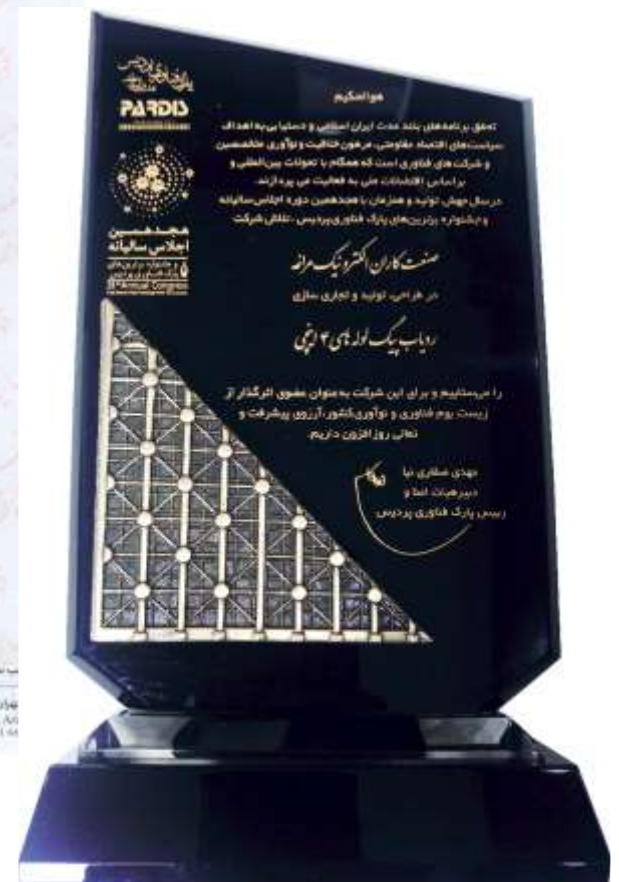 پارک فناوری پردیس
PARDIS
هجدهمین
اجلاس سالیانه
و جشنواره برترین‌های
پارک فناوری پردیس
18th Annual Congress
هوالحکیم
تحقق برنامه‌های بلند مدت ایران اسلامی و دستیابی به اهداف
سیاست‌های اقتصاد مقاومتی، مرهون خلاقیت و نوآوری متخصصین
و شرکت‌های فناوری است که همگام با تحولات بین‌المللی و
بر اساس اقتضائات ملی به فعالیت می پردازند.
در سال جهش تولید و همزمان با هجدهمین دوره اجلاس سالیانه
و جشنواره برترین‌های پارک فناوری پردیس، تلاش شرکت
صنعت کاران الکترونیک مراغه
در طراحی، تولید و تجاری سازی
ردیاب پیگ لوله های ۴ اینچی
را می‌ستاییم و برای این شرکت به‌عنوان عضوی اثرگذار از
زیست بوم فناوری و نوآوری کشور، آرزوی پیشرفت و
تعالی روز افزون داریم.
مهدی صفاری نیا
دبیر هیات امنا و
رییس پارک فناوری پردیس